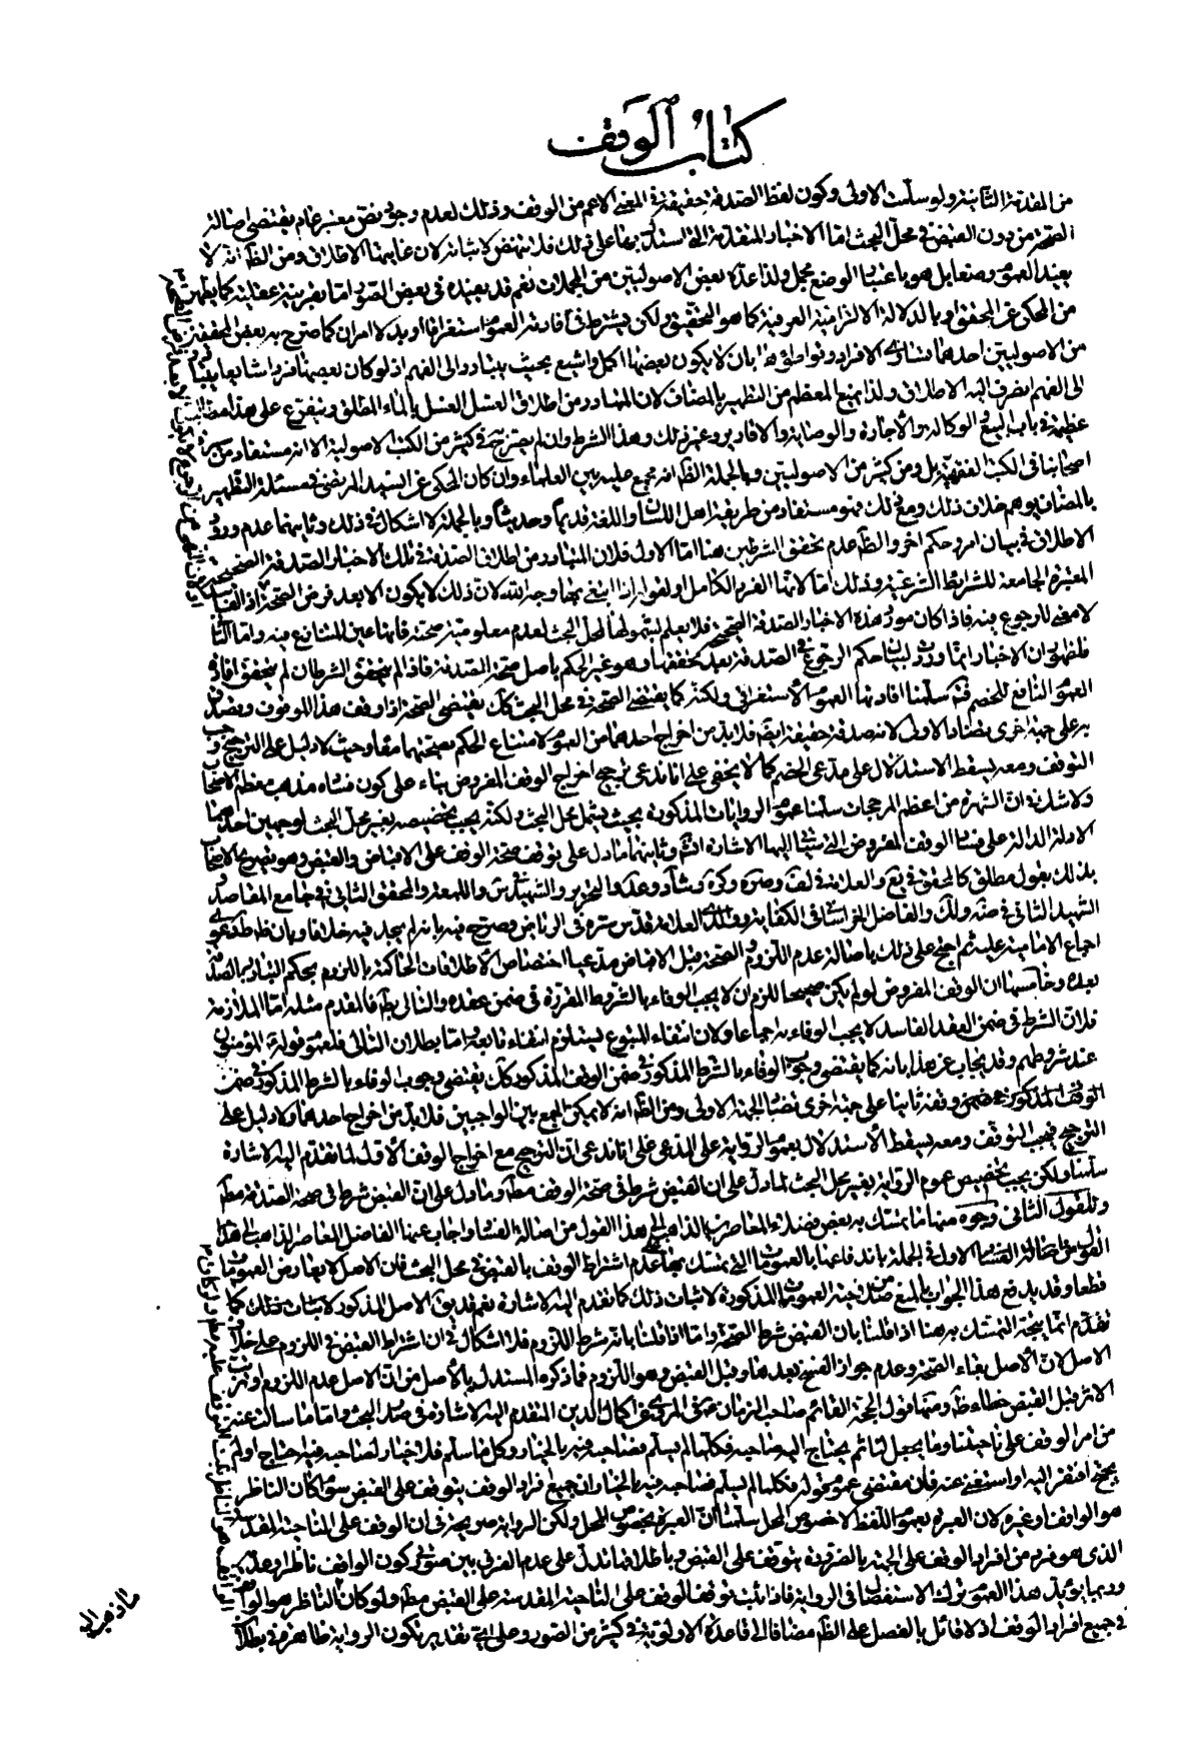 كتاب الوقف
من المقدمة الثانية ولو سلمت الاولى وكون لفظ الصدقة حقيقة في المعنى الاعم من الوقف وذلك لعدم وجود نص معتبر عام يقتضي اصالة
الصحة من دون القبض في محل البحث اما الاخبار المتقدمة التي استدل بها على ذلك فلا تنهض لاثباته لان غايتها الاطلاق ومن الظ انه لا
يفيد العموم وضعا بل هو باعتبار الوضع مجمل ولذا عده بعض الاصوليين من المجملات نعم قد يفيده في بعض الصور اما بقرينة عقلية كما
من المحكي عن المحقق او بالدلالة الالتزامية العرفية كما هو التحقيق ولكن يشترط في افادته العموم استغراقا او بدلا امران كما صرح به بعض المحققين
من الاصوليين احدهما تساوي الافراد وتواطؤها بان لا يكون بعضها اكمل واشيع بحيث يتبادر الى الفهم اذ لو كان بعضها فردا شايعا
الى الفهم لصرف اليه الاطلاق ولذا يمنع المعظم من التطهير بالمضاف لان المتبادر من اطلاق الغسل الغسل بالماء المطلق ويتفرع على هذا
عظيمة في باب البيع والوكالة والاجارة والوصايا والاقارير وغير ذلك وهذا الشرط وان لم يصرح به في كثير من الكتب الاصولية الا انه مستفاد من
اصحابنا في الكتب الفقهية بل ومن كثير من الاصوليين وبالجملة الظ انه مجمع عليه بين العلماء وان كان المحكي عن السيد المرتضى في مسئلة التطهير
بالمضاف يوهم خلاف ذلك ومع ذلك فهو مستفاد من طريقة اهل اللسان واللغة قديما وحديثا وبالجملة لا اشكال في ذلك وثانيهما عدم ورود
الاطلاق في بيان امر وحكم اخر والظ عدم تحقق الشرطين هنا اما الاول فلان المتبادر من اطلاق الصدقة في تلك الاخبار الصدقة الصحيحة
المعتبرة الجامعة للشرايط الشرعية وذلك اما لانها الفرد الكامل او لقوله اذا ابتغي بها وجه الله لان ذلك لا يكون الا بعد فرض الصحة اذ
لا معنى للرجوع فيه فاذا كان مورد هذه الاخبار الصدقة الصحيحة فلا يعلم شمولها لمحل البحث لعدم معلومية صحته فانها عين المتنازع فيه واما
فلظهور ان الاخبار انما وردت لبيان حكم الرجوع في الصدقة بعد تحققها وهو غير الحكم باصل صحة الصدقة فاذا لم يتحقق الشرطان لم يتحقق افادة
العموم النافع للخصم ثم سلمنا افادتها العموم الاستغراقي ولكنه كما يقتضي الصحة في محل البحث كك يقتضي الصحة اذا وقف هذا الموقوف
على جهة اخرى مضاد الاولى لانه صدقة حقيقة ايضا فلا بد من اخراج احدهما من العموم لامتناع الحكم بصحتهما معا وحيث لا دليل على الترجيح وجب
التوقف ومعه يسقط الاستدلال على مدعى الخصم كما لا يخفى على انا ندعي ترجيح اخراج الوقف المفروض بناء على كون فساده مذهب معظم الاصحاب
ولا شك في ان الشهرة من اعظم المرجحات سلمنا عموم الروايات المذكورة بحيث يشمل محل البحث ولكنه يجب تخصيصه بغير محل البحث لوجهين احدهما
الادلة الدالة على فساد الوقف المفروض التي سيأتي اليها الاشارة انشم وثانيهما ما دل على توقف صحة الوقف على الاقباض والقبض وهو تصريح الاصحاب
بذلك بقول مطلق كالمحقق في يع والعلامة في لف وصره وكره وشاد وعد والتحرير والشهيد في س واللمعة والمحقق الثاني في جامع المقاصد
الشهيد الثاني في ضه ولك والفاضل الخراساني في الكفاية ووالدي العلامة قدس سره في الرياض وصرح فيه بانه لم يجد فيه خلافا وبان ظاهر دعوى
اجماع الامامية عليه ثم احتج على ذلك باصالة عدم اللزوم والصحة قبل الاقباض مدعيا اختصاص الاطلاقات الحاكمة باللزوم بحكم التبادر بالصدقة
بعده وخامسها ان الوقف المفروض لو لم يكن صحيحا للزم ان لا يجب الوفاء بالشروط المقررة في ضمن عقده والتالي بط فالمقدم مثله اما الملازمة
فلان الشرط في ضمن العقد الفاسد لا يجب الوفاء به اجماعا ولان انتفاء المتبوع يستلزم انتفاء تابعه واما بطلان التالي فلعموم قوله ع المؤمنون
عند شروطهم وقد يجاب عن هذا بانه كما يقتضي وجوب الوفاء بالشرط المذكور في ضمن الوقف المذكور كك يقتضي وجوب الوفاء بالشرط المذكور في ضمن
الوقف المذكور في ضمن وقفه ثانيا على جهة اخرى تضاد الجهة الاولى ومن الظ انه لا يمكن الجمع بين الواجبين فلا بد من اخراج احدهما ولا دليل على
الترجيح فيجب التوقف ومعه يسقط الاستدلال بعموم الرواية على المدعى على انا ندعي ان الترجيح مع اخراج الوقف الاول لما تقدم اليه الاشارة
سلمنا ولكن يجب تخصيص عموم الرواية بغير محل البحث لما دل على ان القبض شرط في صحة الوقف مط وما دل على ان القبض شرط في صحة الصدقة مط
وللقول الثاني وجوه منها ما تمسك به بعض فضلاء المعاصرين الذاهب الى هذا القول من اصالة الفساد واجاب عنها الفاضل المعاصر الذاهب الى هذا
القول من اصالة الفساد الاول في الجملة باندفاعها بالعمومات التي تمسك بها على عدم اشتراط الوقف بالقبض في محل البحث فان الاصل لا يعارض العمومات
قطعا وقد يدفع هذا الجواب بالمنع من صلاحية العمومات المذكورة لاثبات ذلك كما تقدم اليه الاشارة نعم قد يق الاصل المذكور لاثبات ذلك كما
تقدم انما يتجه التمسك به هنا اذا قلنا بان القبض شرط الصحة واما اذا قلنا بانه شرط اللزوم فلا اشكال في ان اشتراط القبض في اللزوم على خلاف
الاصل لان الاصل بقاء الصحة وعدم جواز الفسخ بعدها وقبل القبض وهو اللزوم فما ذكره المستدل بالاصل من ان الاصل عدم اللزوم
الاثر قبل القبض خطاء ظ ومنها قول الحجة القائم صاحب الزمان عج في المروي عن كمال الدين المتقدم اليه الاشارة في صدر البحث واما ما سالت عنه
من امر الوقف على ناحيتنا وما يجعل لنا ثم يحتاج اليه صاحبه فكلما لم يسلم فصاحبه فيه بالخيار وكل ما سلم فلا خيار لصاحبه فيه احتاج اولم
يحتج افتقر اليه او استغنى عنه فان مقتضى عموم قوله فكلما لم يسلم فصاحبه فيه بالخيار ان جميع افراد الوقف يتوقف على القبض سواء كان الناظر
هو الواقف او غيره لان العبرة بعموم اللفظ لا خصوص المحل سلمنا ان العبرة بخصوص المحل ولكن الرواية صريحة في ان الوقف على الناحية المقدسة
الذي هو فرد من افراد الوقف على الجهة بالضرورة يتوقف على القبض وباطلاقها تدل على عدم الفرق بين صورتي كون الواقف ناظرا وعدمه
وربما يؤيد هذا العموم ترك الاستفصال في الرواية فاذا ثبت توقف الوقف على الناحية المقدسة على القبض مط ولو كان الناظر هو الواقف
في جميع افراد الوقف اذ لا قائل بالفصل على الظ مضافا الى قاعدة الاولوية في كثير من الصور وعلى اي تقدير تكون الرواية ظاهرة في بطلان
ما ذهب اليه